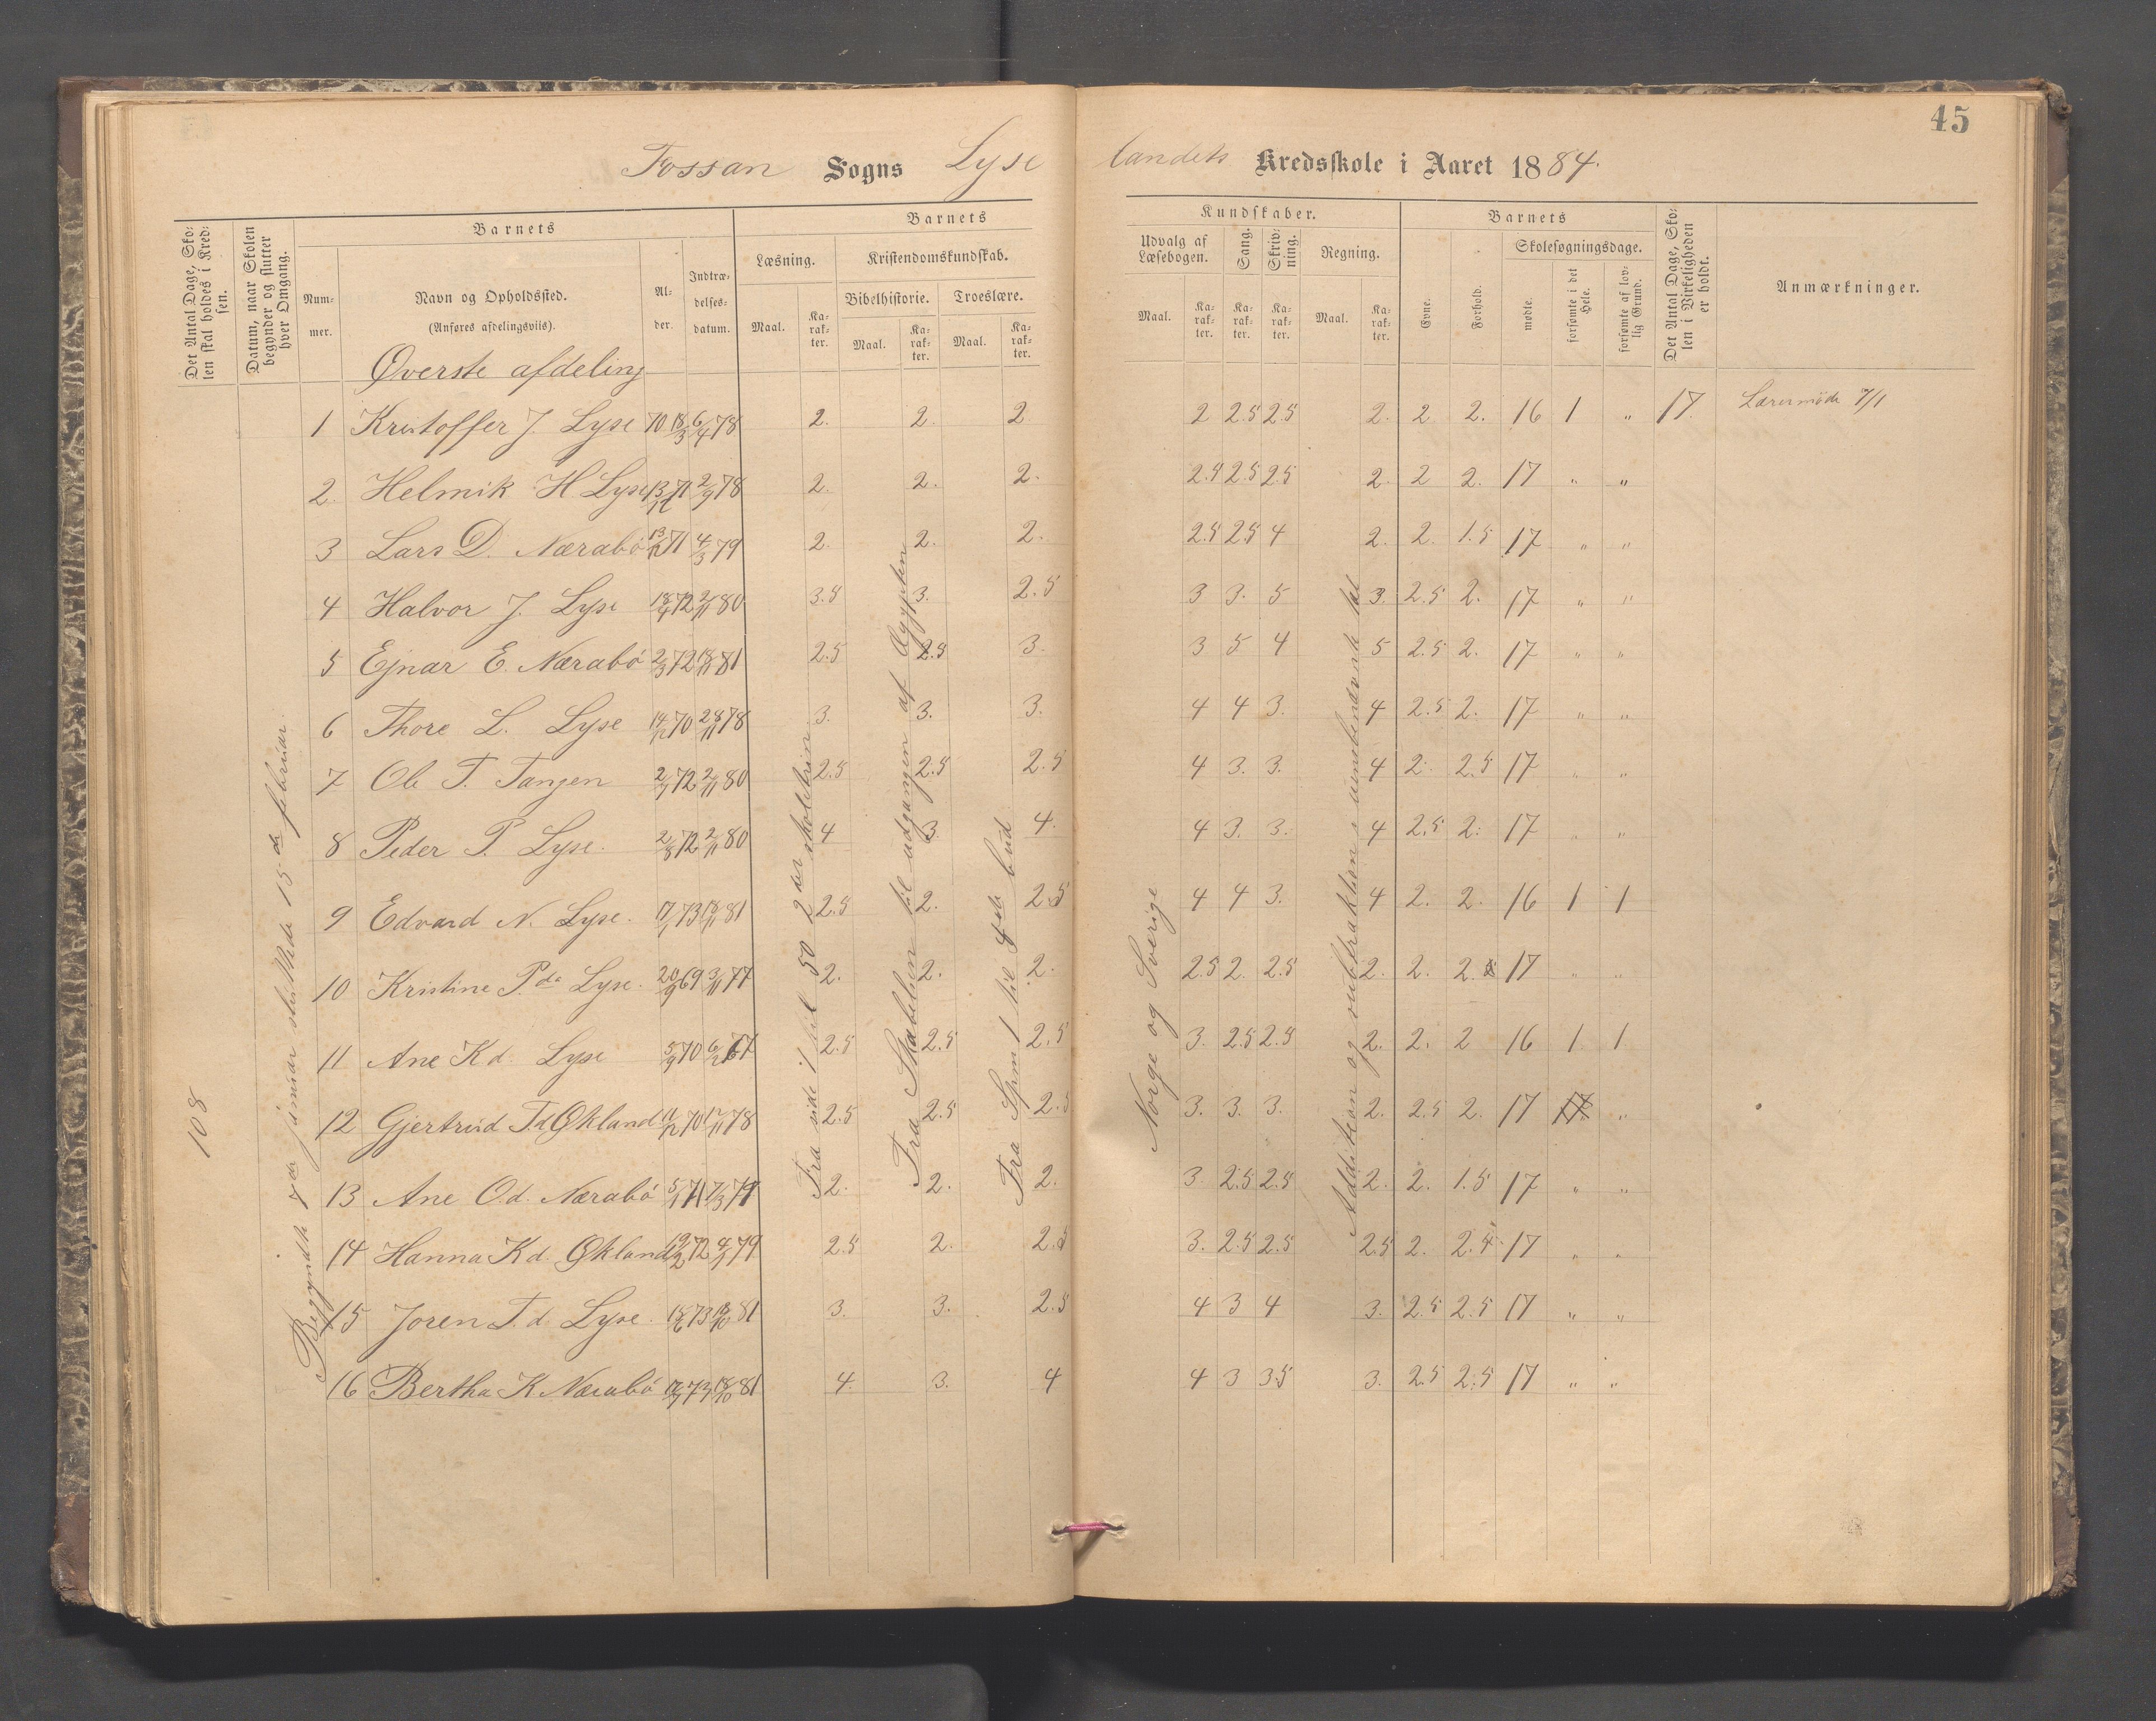 45
Fossan Sogns Lyse landets Kredsskole i Aaret 1884.
Det Antal Dage, Skolen skal holdes i Kredsen.
Datum, naar Skolen begynder og slutter hver Omgang.
Barnets
Nummer.
Navn og Opholdssted.
(Anføres afdelingsviis).
Alder.
Indtrædelsesdatum.
Barnets
Læsning.
Maal.
Karakter.
Kristendomskundskab.
Bibelhistorie.
Maal.
Karakter.
Troeslære.
Maal.
Karakter.
Kundskaber.
Udvalg af Læsebogen.
Maal.
Karakter.
Sang.
Karakter.
Skrivning.
Karakter.
Regning.
Maal.
Karakter.
Barnets
Evne.
Forhold.
Skolesøgningsdage.
mødte.
forsømte i det Hele.
forsømte af lovlig Grund.
Det Antal Dage, Skolen i Virkeligheden er holdt.
Anmærkninger.
Øverste afdeling
1 Kristoffer J. Lyse 70 18/3 6/4 78 2. 2. 2 2 2.5 2.5 2. 2 2. 16 1 „ 17. Lærermøde 7/1
2. Helmik H Lyse 71 2/9 78 2. 2. 2. 2.5 2.5 2.5 2. 2 2. 17 „ „
3 Lars D. Nærabø 71 4/3 79 2. 2. 2. 2.5 2.5 4 2. 2. 1.5 17 „ „
4 Halvor J. Lyse 72 2/11 80 3.5 3. 2.5 3 3. 5 3. 2.5 2. 17 „ „
5 Ejnar E. Nærabø 2/3 72 18/11 81 2.5 2.5 3. 3 5 4 5 2.5 2. 17 „ „
6 Thore L. Lyse 70 28/11 78 3. 3. 3. 4 4 3. 4 2.5 2. 17 „ „
7 Ole T. Tangen 72 2/11 80 2.5 2.5 2.5 4 3. 3. 4 2. 2.5 17 „ „
8 Peder P. Lyse. 2/8 72 2/11 80 4 3. 4. 4 3. 3. 4 2.5 2. 17 „ „
9 Edvard N. Lyse. 73 18/11 81 2.5 2. 2.5 4 4 3. 4 2. 2. 16 1 1
10 Kristine P.da Lyse. 20/9 69 3/11 77 2. 2. 2. 2.5 2. 2.5 2. 2. 2. 17 „ „
11 Ane K d. Lyse 5/9 70 2.5 2.5 2.5 3. 2.5 2.5 2. 2. 2 16 1 1
12 Gjertrud T.d Økland. 70 78 2.5 2.5 2.5 3. 3. 3. 2. 2.5 2. 17 „
13 Ane O.d. Nærabø 71 79 2. 2. 2. 3. 2.5 2.5 2. 2. 1.5 17 „ „
14 Hanna K d. Økland 72 79 2.5 2. 2.5 3. 2.5 2.5 2.5 2. 2.5 17 „ „
15 Joren T. d. Lyse. 18/6 73 18/10 81 3. 3. 2.5 4 3 4 3. 2.5 2.5 17 „ „
16 Bertha K Nærabø 73 18/10 81 4. 3. 4 4 3 3.5 3. 2.5 2.5 17 „ „
108
Begyndte 7de januar sluttede 15de februar.
Fra side 1 til 50 2det skoletrin
Fra Skabelsen til udgangen af Ægypten
Fra Spm 1 til 4de bud
Norge og Sverige
Addition og subtraktion i uensbenævnte tal